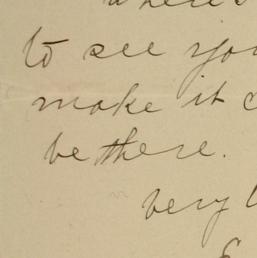 to see you
make it
be there.
very